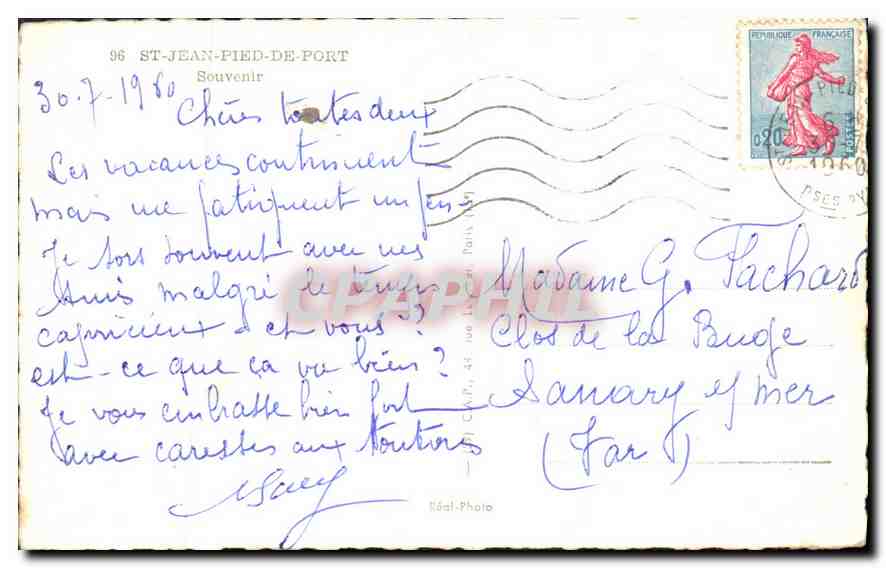 96 ST-JEAN-PIED-DE-PORT
Souvenir
30-7-1960
Chères toutes deux
Les vacances continuent
mais me fatiguent un peu-
Je sors souvent avec mes
Amis malgré le temps
capricieux - et vous?
est-ce que ça va bien?
Je vous embrasse bien fort
avec caresses aux toutous
REPUBLIQUE FRANÇAISE
0,20
POSTES
1960
Madame G. Pachard
Clos de la Buge
Sanary s/ mer
(Var)
CPAPHIL
Réal-Photo